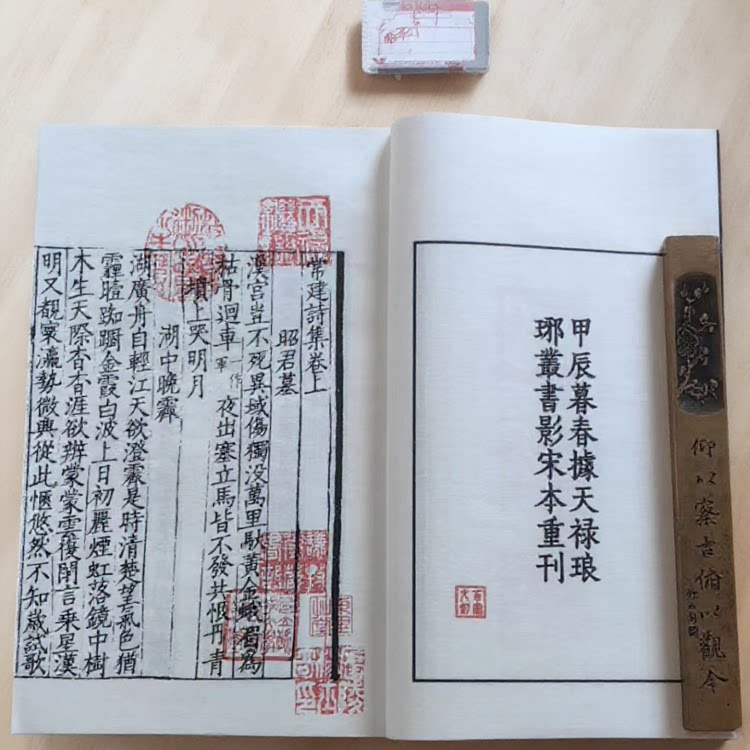 甲辰暮春據天禄琅
琊叢書影宋本重刊
仰以察古俯以觀今
常建詩集卷上
昭君墓
漢宮豈不死異域傷獨没萬里馱黄金蛾眉為
枯骨迴車一作軍夜出塞立馬皆不發共恨丹青
人墳上哭明月
湖中晚霽
湖廣舟自輕江天欲澄霽是時清楚望氣色猶
霾曀踟躅金霞白波上日初麗煙虹落鏡中樹
木生天際杳杳涯欲辨蒙蒙雲復閉言乘星漢
明又覩寰瀛勢微興從此愜悠然不知歲試歌